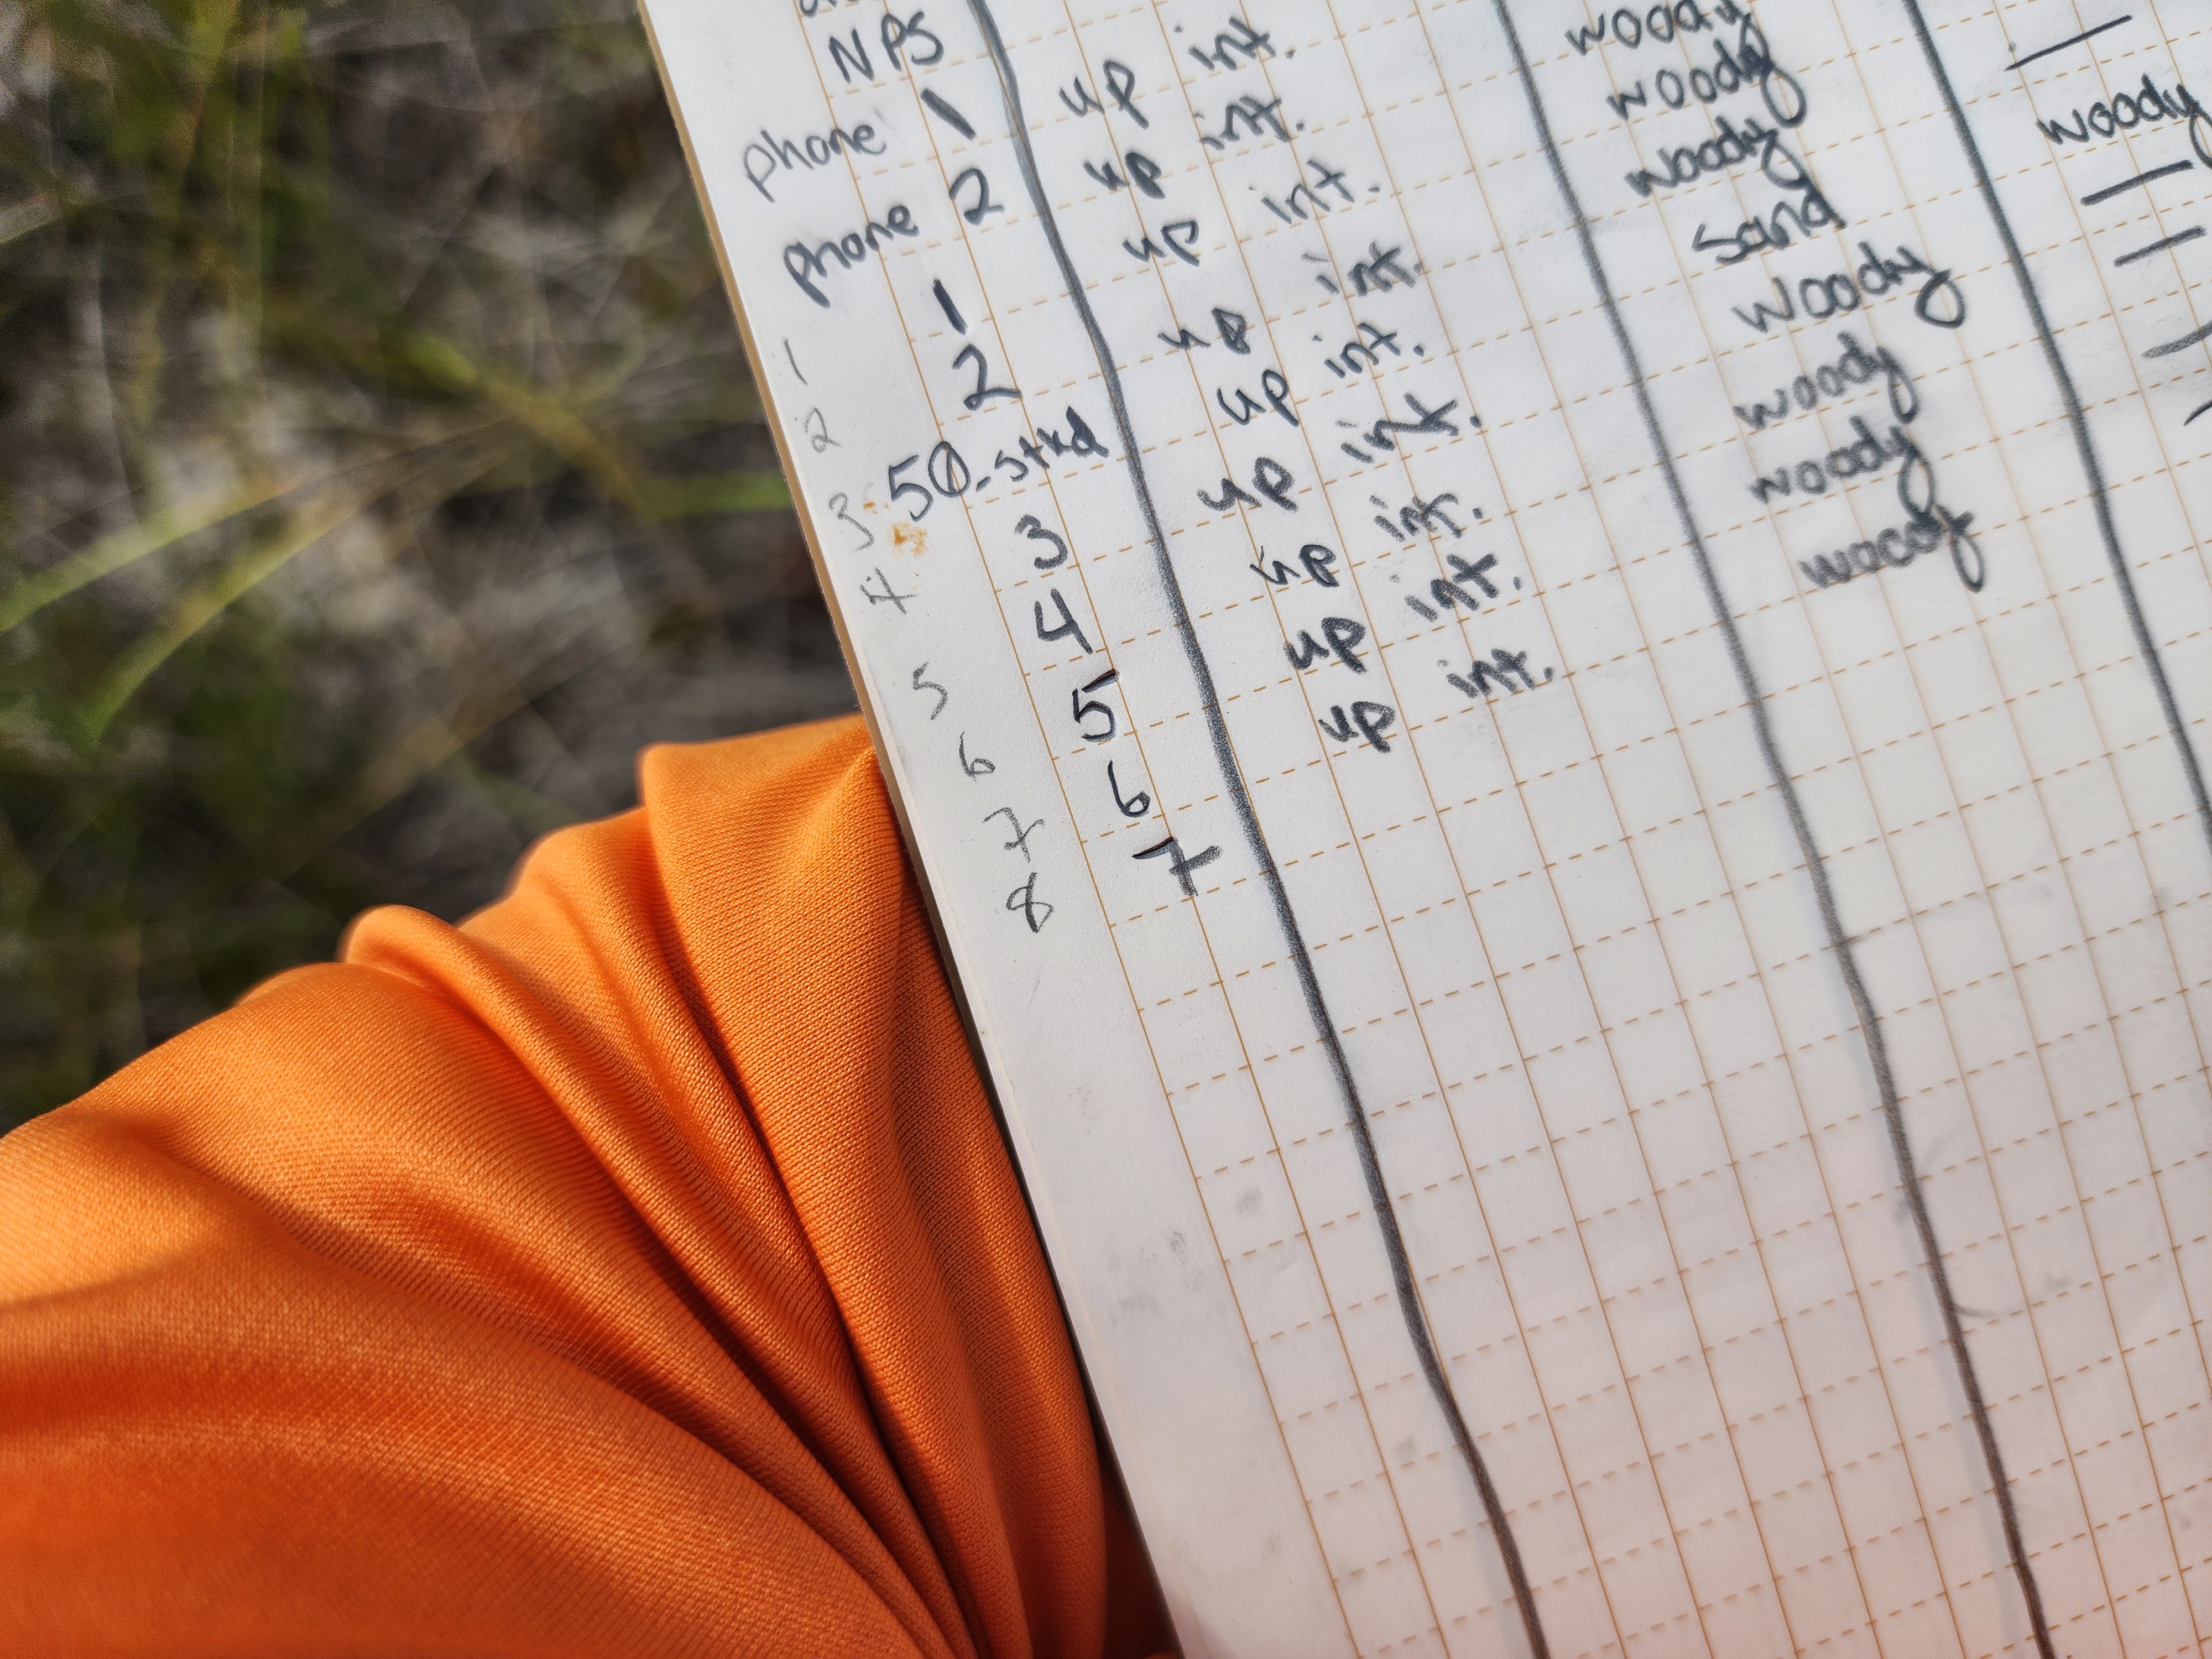 NPS
phone 1 up int.
phone 2 up int. woody
1 1 up int. woody
2 2 up int. woody —
3 50-stkd up int. sand woody
4 3 up int. Woody —
5 4 up int. woody —
6 5 up int. woody —
7 6 up int. woody —
8 7